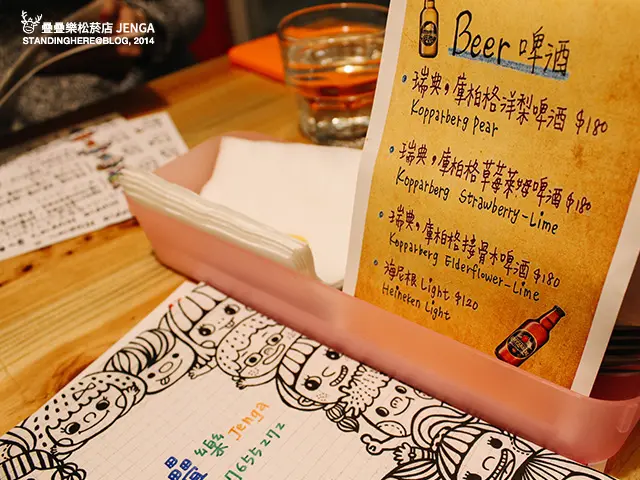 疊疊樂松菸店 JENGA
STANDINGHERE@BLOG, 2014
Beer 啤酒
瑞典,庫柏格洋梨啤酒 $180
Kopparberg Pear
瑞典,庫柏格草莓萊姆啤酒 $180
Kopparberg Strawberry-Lime
瑞典,庫柏格接骨木啤酒 $180
Kopparberg Elderflower-Lime
海尼根 Light $120
Heineken Light
疊樂 Jenga